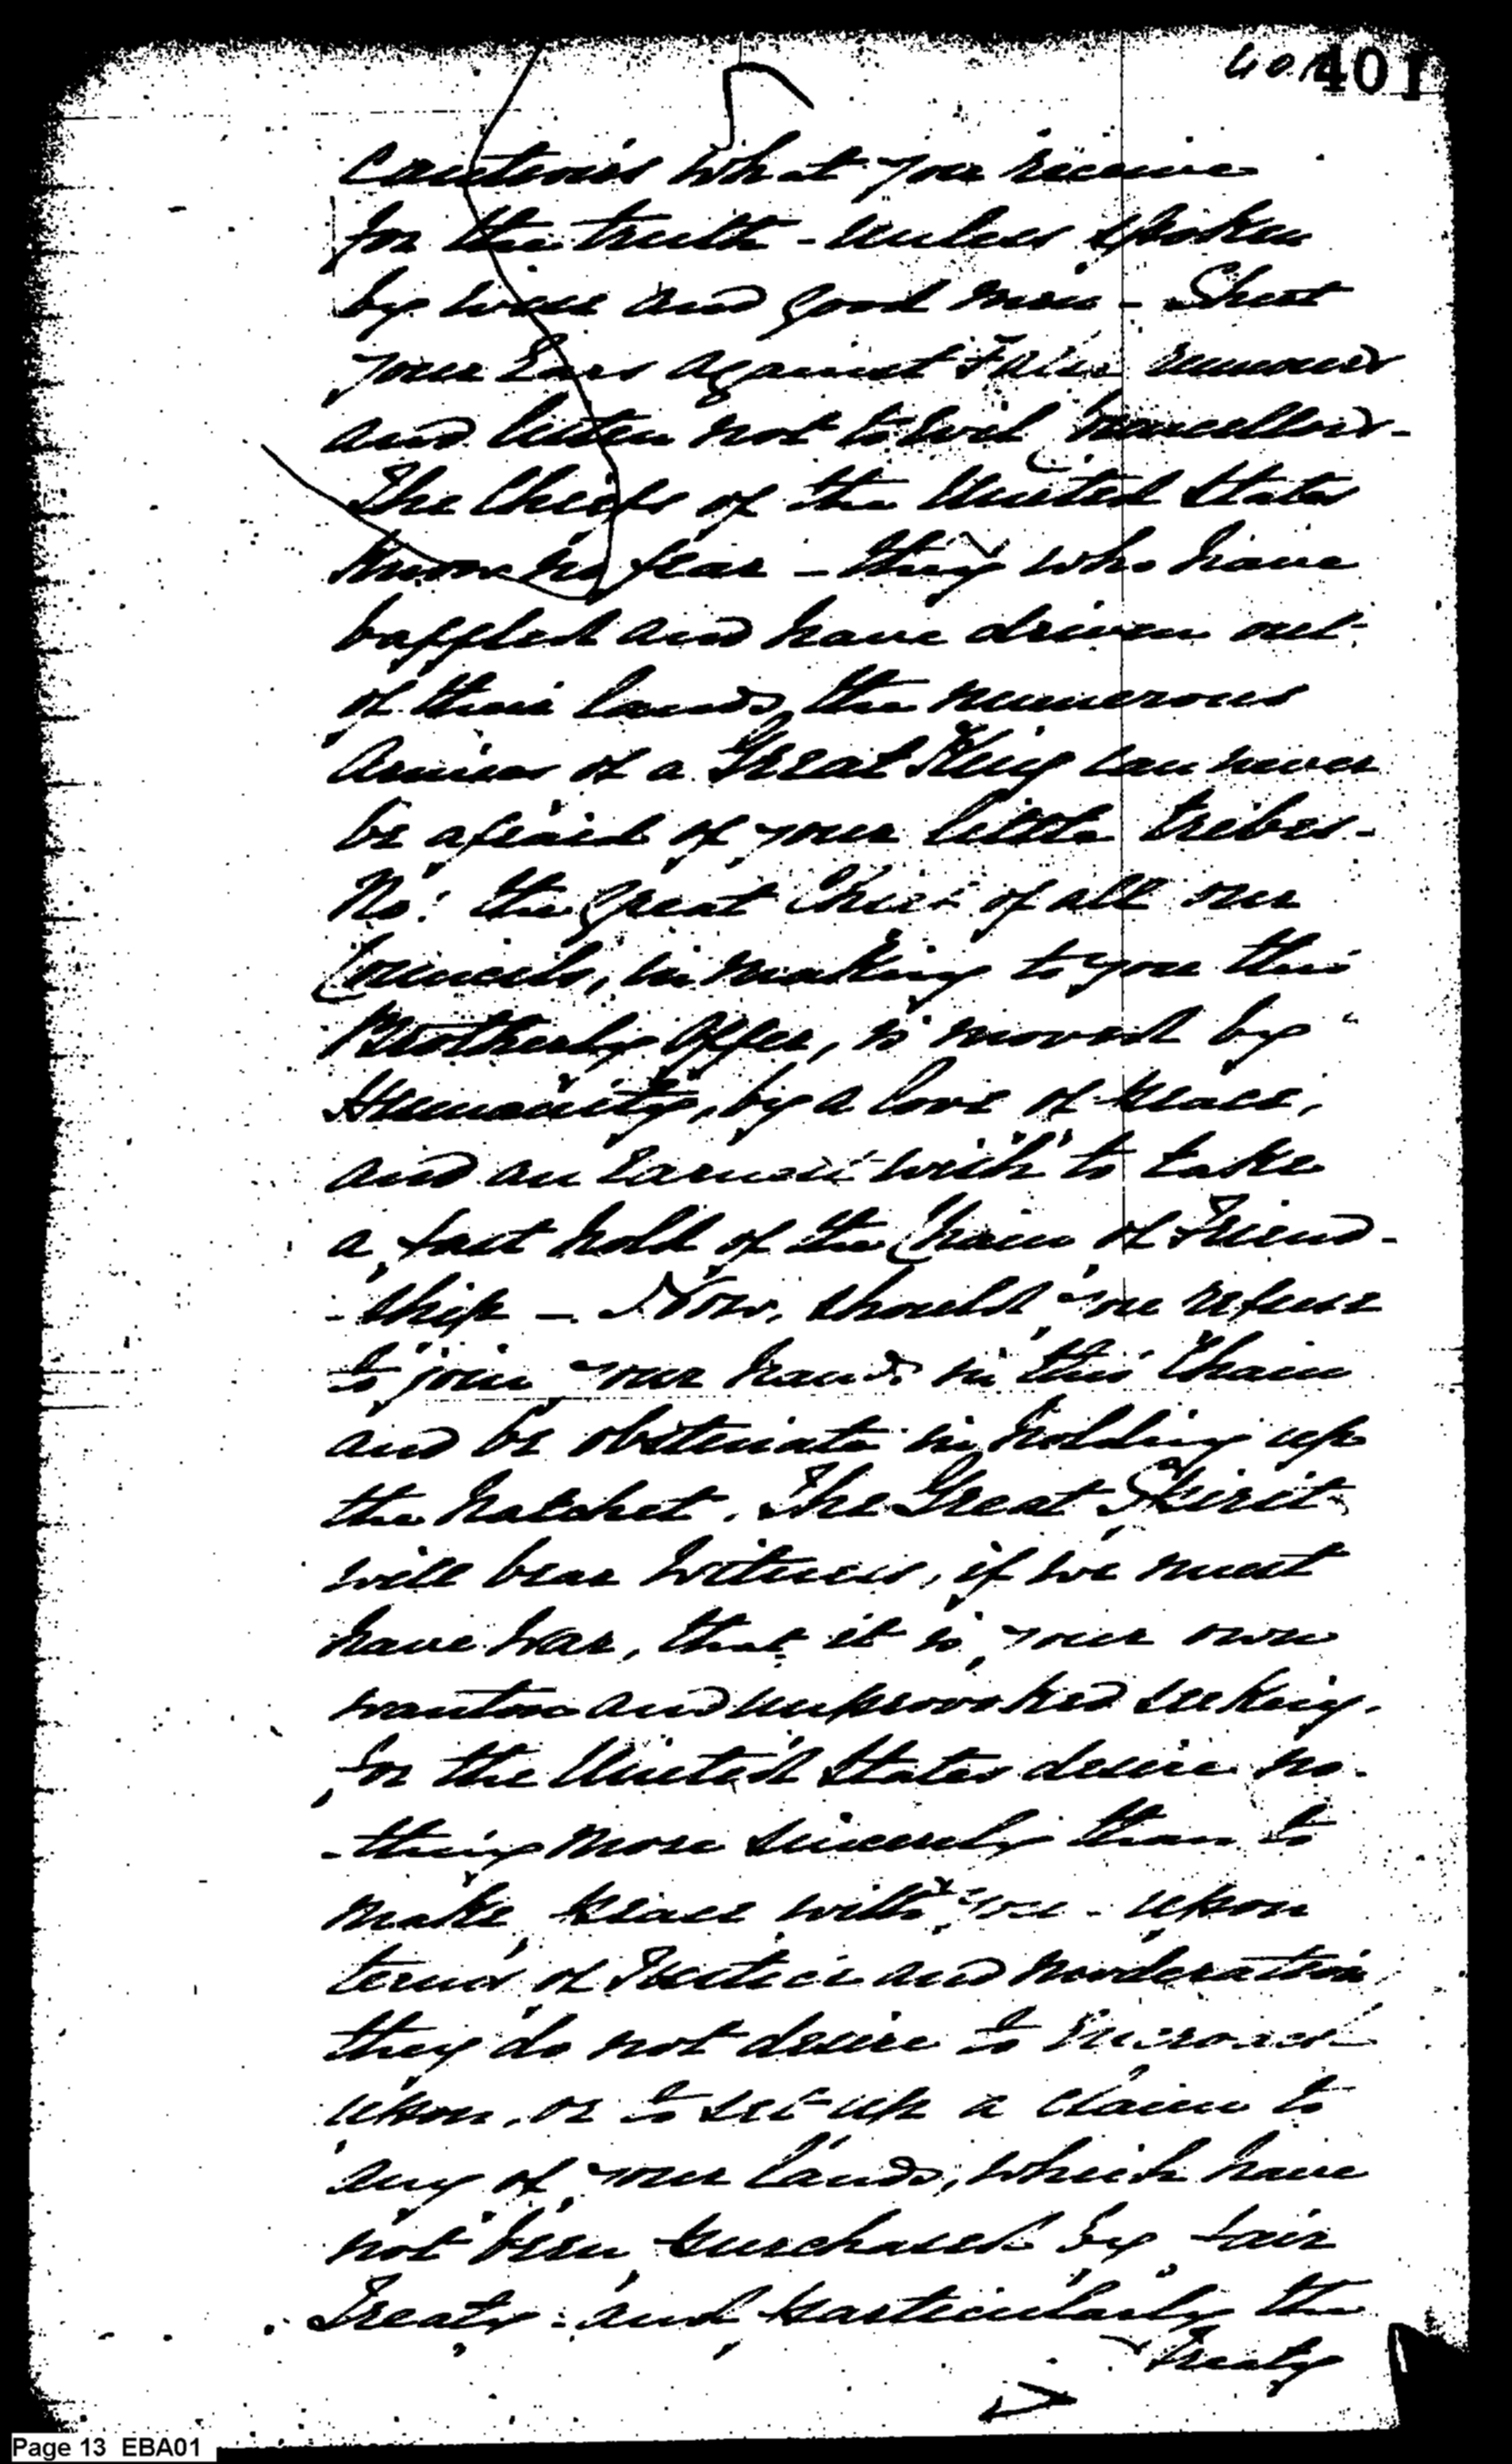 401 401
Cautious what you receive
for the truth - unless spoken
by wise and good men - Shut
your Ears against False rumours
and listen not to Evil Councellors -
The Chiefs of the United States
Know no fear - they who have
baffled and have driven out
of their lands, the numerous
Armies of a Great King can never
be afraid of your little tribes -
No! the great Chief of all our
Councils, in making to you this
Brotherly Offer, is moved by
Humanity, by a love of peace,
and an Earnest wish to take
a fast hold of the Chain of Friend-
-ship - Now, should you refuse
to join your hands in this Chain
and be obstinate in holding up
the hatchet. The Great Spirit
will bear witness, if we must
have War, that it is your own
wanton and unprovoked seeking.
for the United States desire no-
-thing more sincerely than to
make peace with you - upon
terms of Justice and Moderation
they do not desire to Encroach
upon, or to set up a claim to
any of your lands, which have
not been purchased by fair
Treaty: and particularly the
Treaty
Page 13 EBA01